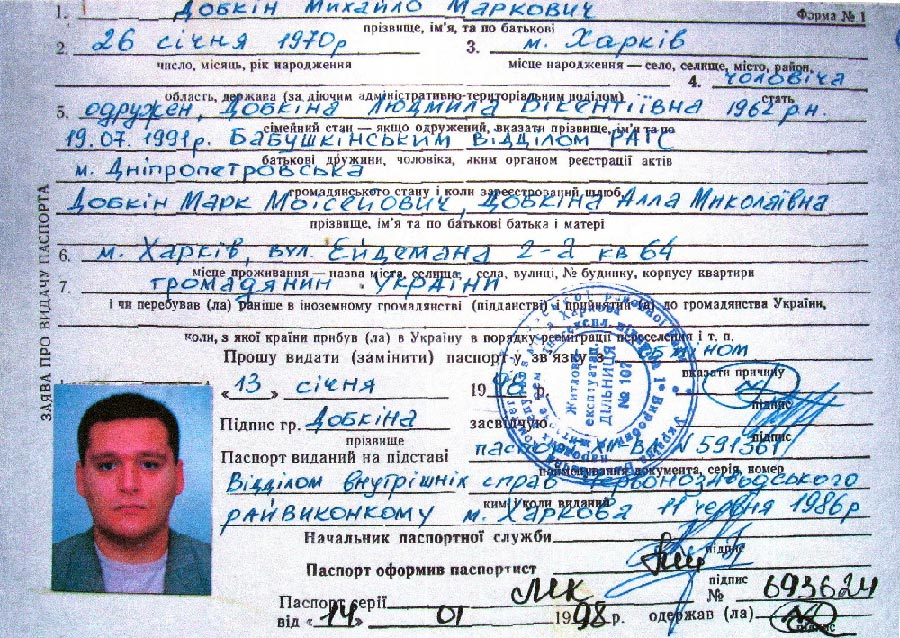 1. Добкін Михайло Маркович Форма № 1
прізвище, ім'я, та по батькові
2. 26 січня 1970р 3. м. Харків
число, місяць, рік народження місце народження — село, селище, місто, район,
4. чоловіча
область, держава (за діючим адміністративно-територіальним поділом) стать
5. одружен, Добкіна Людмила Вікентіївна 1962 р.н.
сімейний стан — якщо одружений, вказати прізвище, ім'я та по
19.07.1991р. Бабушкінським відділом РАГС
батькові дружини, чоловіка, яким органом реєстрації актів
м. Дніпропетровська
громадянського стану і коли зареєстрований шлюб
Добкін Марк Моісейович, Добкіна Алла Миколаївна
прізвище, ім'я та по батькові батька і матері
6. м. Харків, вул. Ейдемана 2-а кв 64
місце проживання — назва міста, селища, села, вулиці, № будинку, корпусу квартири
7. громадянин України
і чи перебував (ла) раніше в іноземному громадянстві (підданстві) і прийнятий (а) до громадянства України,
коли, з якої країни прибув (ла) в Україну в порядку рееміграції переселення і т. п.
Прошу видати (замінити) паспорт у зв'язку з обміном
вказати причину
«13» січня 1998 р.
підпис
Підпис гр. Добкіна засвідчую
прізвище підпис
Паспорт виданий на підставі паспорт № 591361
найменування документа, серія, номер
Відділом внутрішніх справ Червонозаводського
ким і коли виданий
райвиконкому м. Харкова 11 червня 1986р
Начальник паспортної служби
підпис
Паспорт оформив паспортист
підпис
Паспорт серії МК № 693624
від «14» 01 1998 р. одержав (ла)
підпис
ЗАЯВА ПРО ВИДАЧУ ПАСПОРТА
Житлово
експлуатац.
ДІЛЬНИЦЯ
№ 107